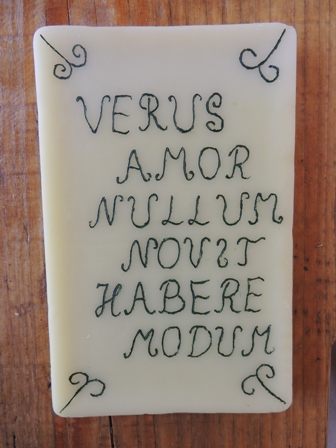 VERUS
AMOR
NULLUM
NOVIT
HABERE
MODUM